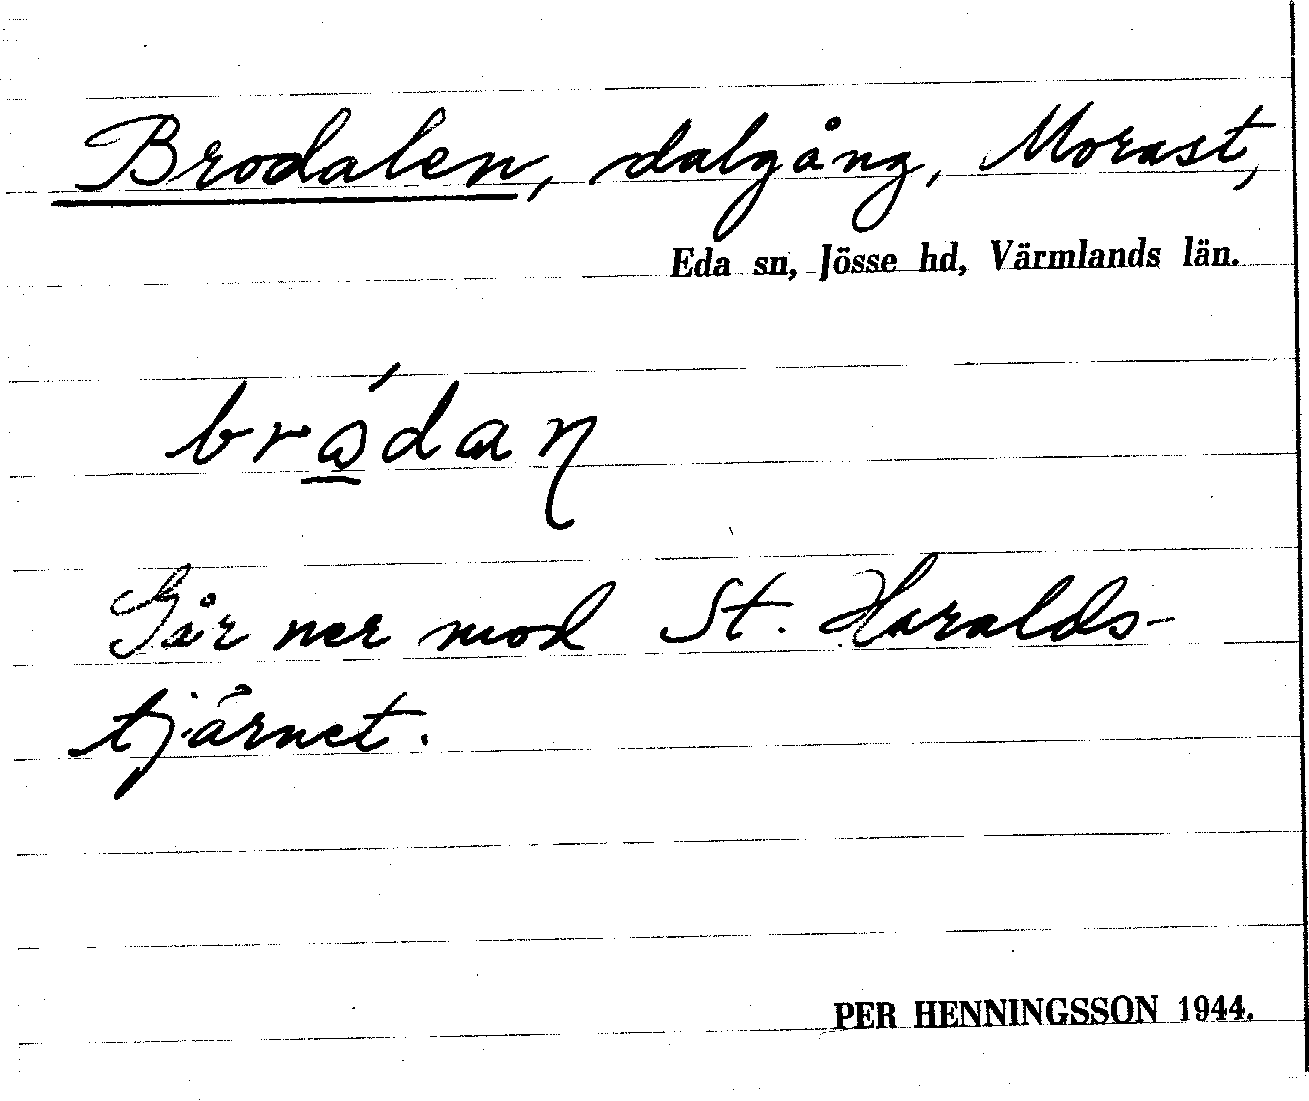 Brodalen, dalgång, Morast,
Eda sn, Jösse hd, Värmlands län.
Går ner mod St. Haralds-
tjärnet.
PER HENNINGSSON 1944.